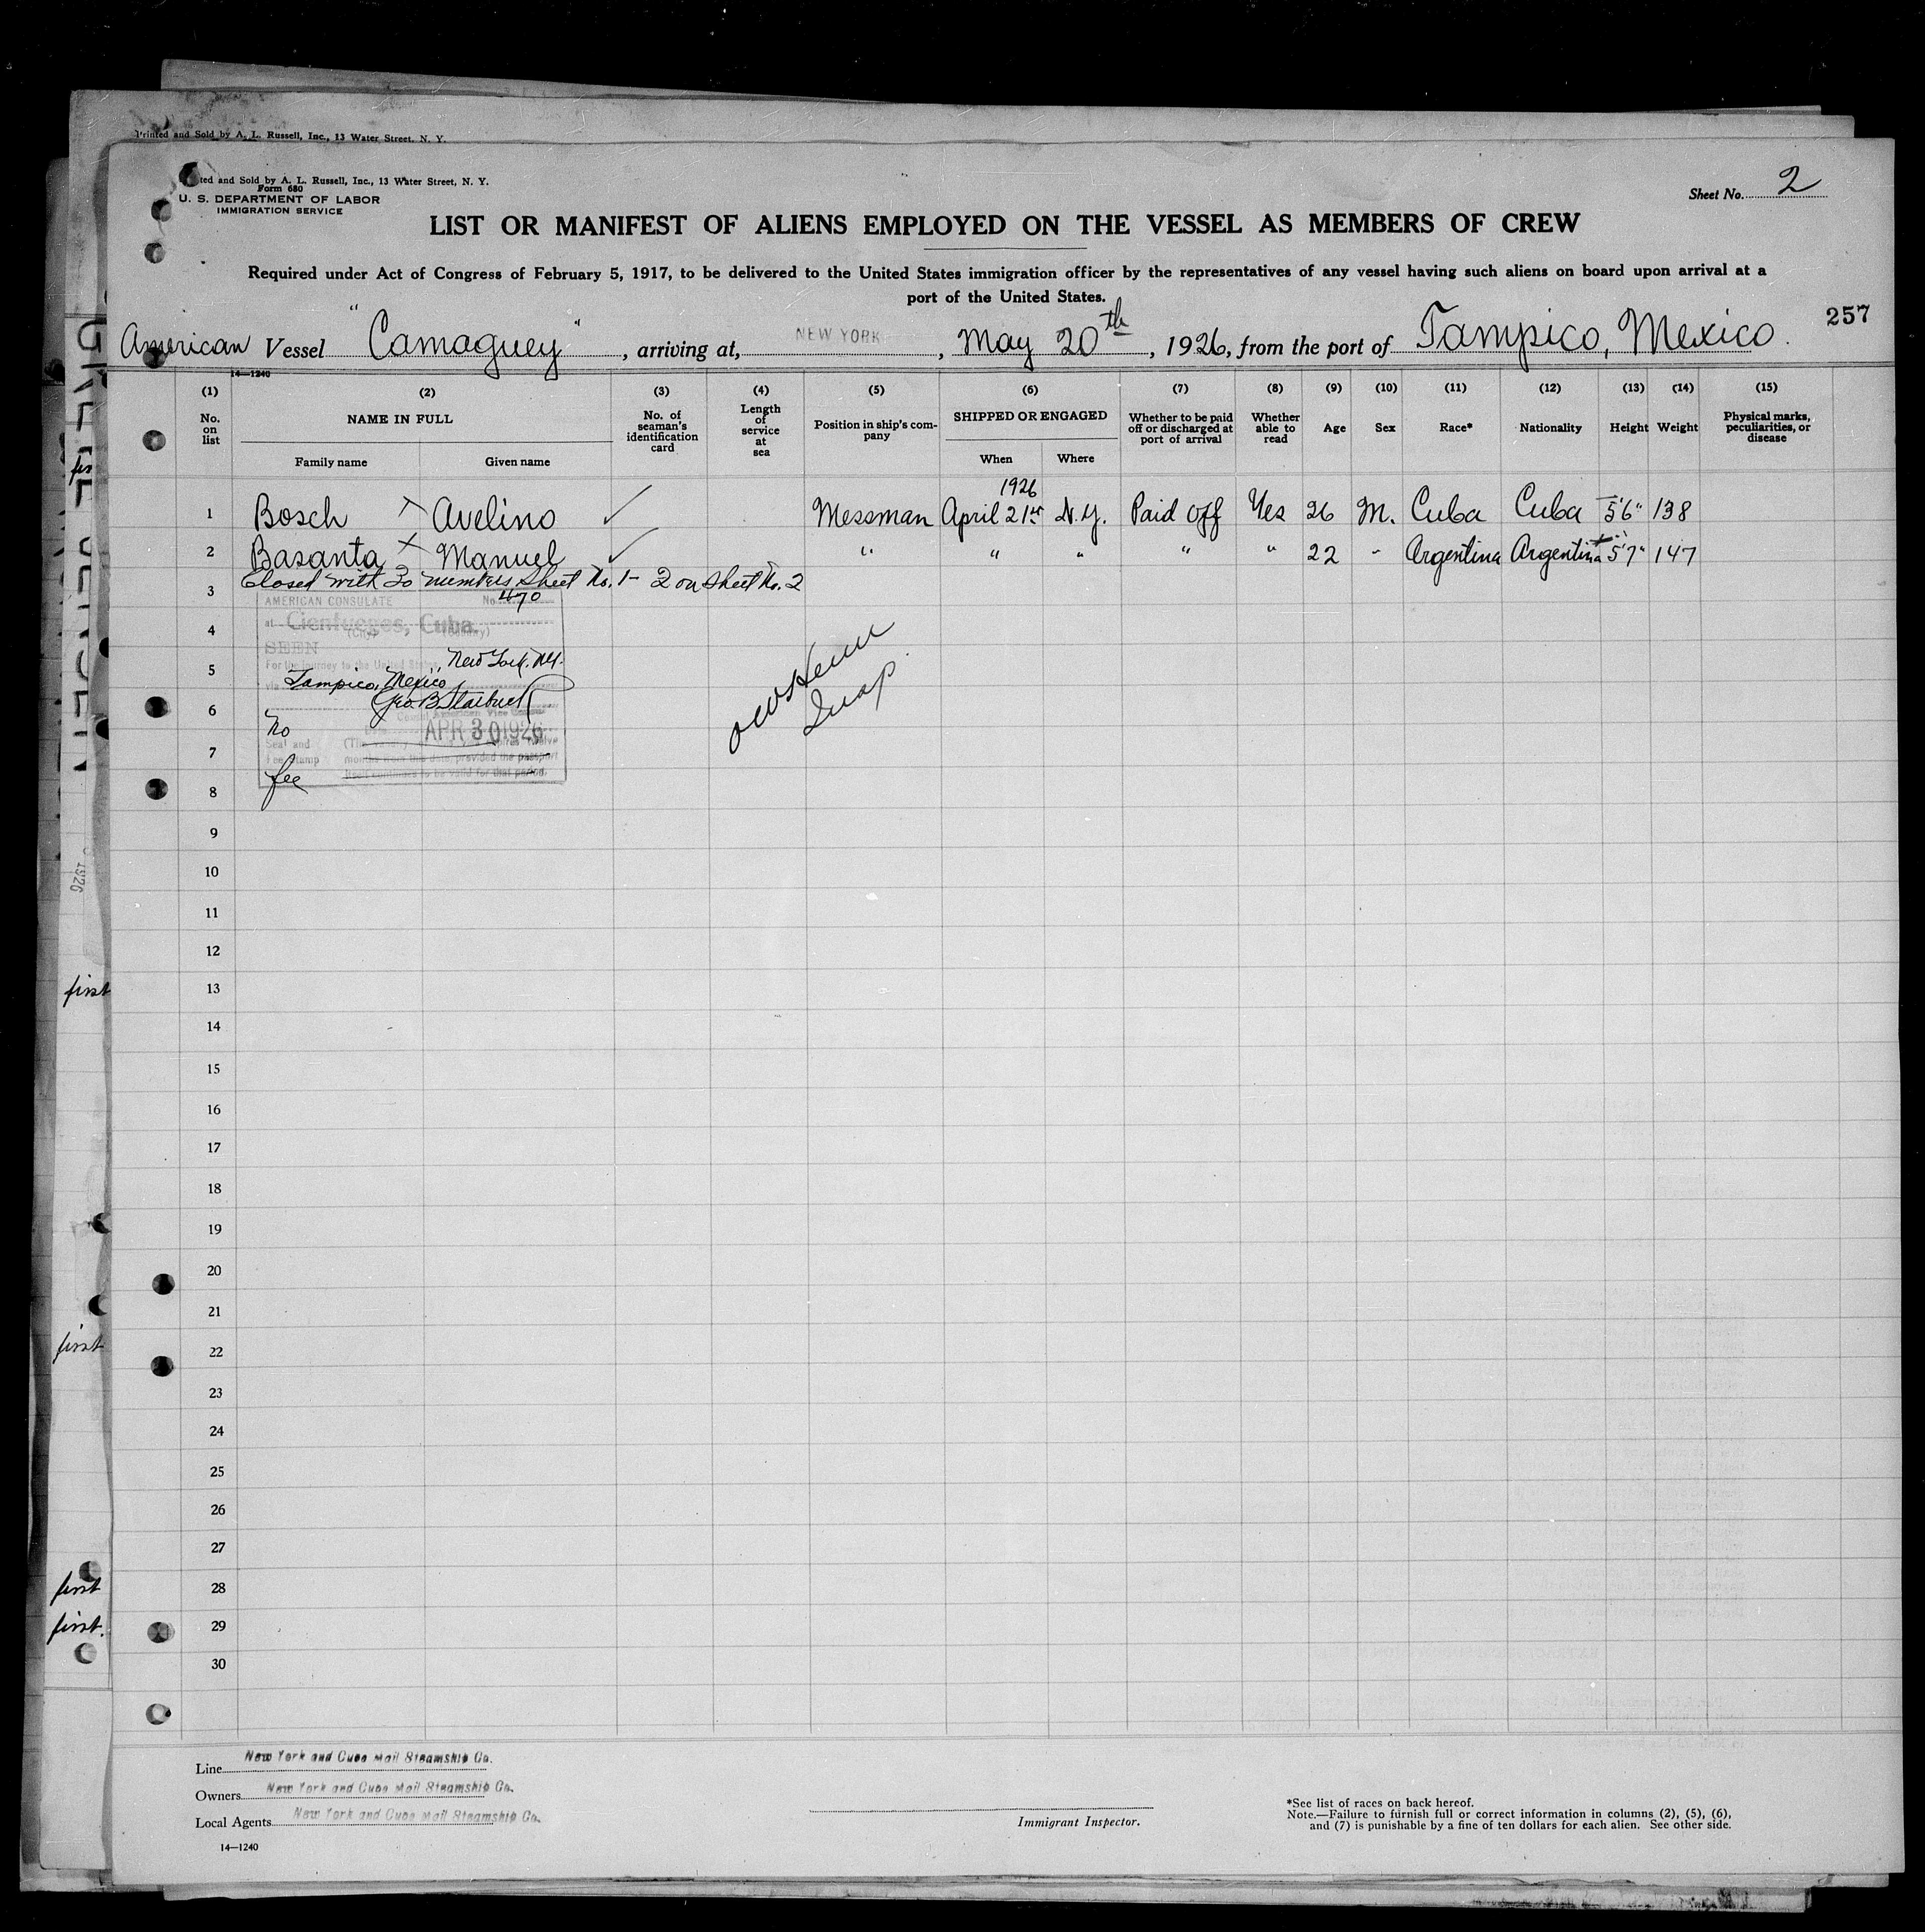 Printed and Sold by A. L. Russell, Inc., 13 Water Street, N. Y.
ted and Sold by A. L. Russell, Inc., 13 Water Street, N. Y.
Form 680
U. S. DEPARTMENT OF LABOR
IMMIGRATION SERVICE
Sheet No. 2
LIST OR MANIFEST OF ALIENS EMPLOYED ON THE VESSEL AS MEMBERS OF CREW
Required under Act of Congress of February 5, 1917, to be delivered to the United States immigration officer by the representatives of any vessel having such aliens on board upon arrival at a
port of the United States.
257
American Vessel "Camaguey", arriving at, NEW YORK, May 20th, 1926, from the port of Tampico, Mexico.
14—1240
(1) (2) (3) (4) (5) (6) (7) (8) (9) (10) (11) (12) (13) (14) (15)
No. on list NAME IN FULL No. of seaman's identification card Length of service at sea Position in ship's company SHIPPED OR ENGAGED Whether to be paid off or discharged at port of arrival Whether able to read Age Sex Race* Nationality Height Weight Physical marks, peculiarities, or disease
Family name Given name When Where
1926
1 Bosch x Avelino ✓ Messman April 21st N.Y. Paid Off Yes 26 M. Cuba Cuba 5'6" 138
2 Basanta x Manuel ✓ " " " " " 22 " Argentina Argentina 5'7" 147
Closed with 30 numbers Sheet No. 1 - 2 on Sheet No. 2
3
AMERICAN CONSULATE No. 470
at Cienfuegos, Cuba.
(City) (Country)
4
SEEN
For the journey to the United States, New York, N.Y.
5
via Tampico, Mexico
Geo. B. Starbuck
6
American Vice Consul
No
APR 30 1926
7
Seal and
Fee Stamp
months from this date, provided the passport
itself continues to be valid for that period.
fee
8
9
10
11
12
13
14
15
16
17
18
19
20
21
22
23
24
25
26
27
28
29
30
first
first
first
first.
1926
Line New York and Cuba Mail Steamship Co.
Owners New York and Cuba Mail Steamship Co.
Local Agents New York and Cuba Mail Steamship Co.
14—1240
Immigrant Inspector.
*See list of races on back hereof.
Note.—Failure to furnish full or correct information in columns (2), (5), (6),
and (7) is punishable by a fine of ten dollars for each alien. See other side.